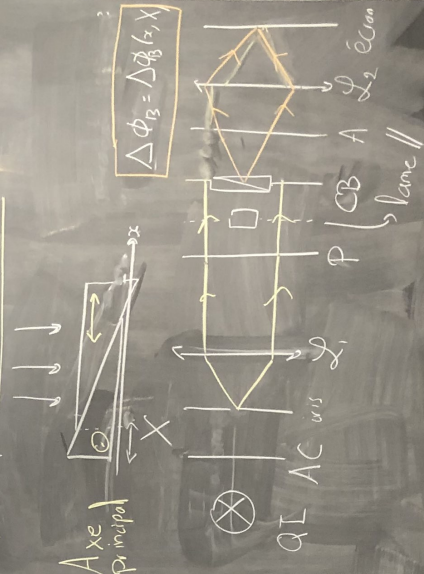 Axe
principal
X
x
Δφ_B = Δφ_B(x, X
QI
AC
iris
L₁
P
CB
lame //
A
L₂
écran